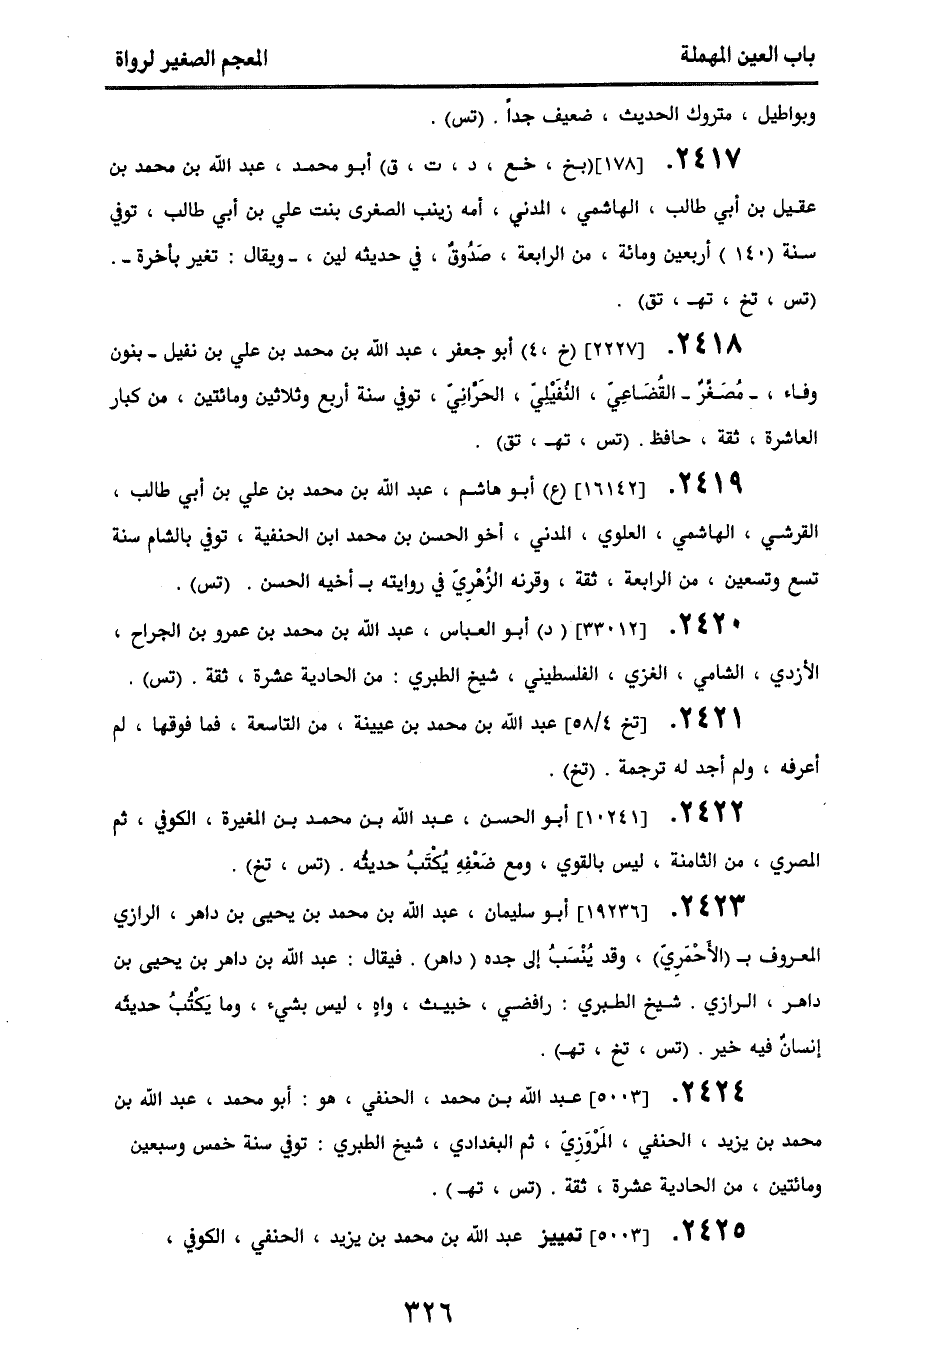 باب العين المهملة
المعجم الصغير لرواة
وبواطيل ، متروك الحديث ، ضعيف جداً . (تس) .
٢٤١٧. [١٧٨](بخ ، خع ، د ، ت ، ق) أبو محمد ، عبد الله بن محمد بن
عقيل بن أبي طالب ، الهاشمي ، المدني ، أمه زينب الصغرى بنت علي بن أبي طالب ، توفي
سنة (١٤٠ ) أربعين ومائة ، من الرابعة ، صَدُوقٌ ، في حديثه لين ، ـ ويقال : تغير بأخرة ـ .
(تس ، تخ ، تهـ ، تق) .
٢٤١٨. [٢٢٢٧] (خ ،٤) أبو جعفر ، عبد الله بن محمد بن علي بن نفيل ـ بنون
وفاء ، ـ مُصَغَّرٌ ـ القُضَاعِيّ ، النُّفَيْلِيّ ، الحَرَّانِيّ ، توفي سنة أربع وثلاثين ومائتين ، من كبار
العاشرة ، ثقة ، حافظ . (تس ، تهـ ، تق) .
٢٤١٩. [١٦١٤٢] (ع) أبو هاشم ، عبد الله بن محمد بن علي بن أبي طالب ،
القرشي ، الهاشمي ، العلوي ، المدني ، أخو الحسن بن محمد ابن الحنفية ، توفي بالشام سنة
تسع وتسعين ، من الرابعة ، ثقة ، وقرنه الزُهْرِيّ في روايته بـ أخيه الحسن . (تس) .
٢٤٢٠. [٣٣٠١٢] ( د) أبو العباس ، عبد الله بن محمد بن عمرو بن الجراح ،
الأزدي ، الشامي ، الغزي ، الفلسطيني ، شيخ الطبري : من الحادية عشرة ، ثقة . (تس) .
٢٤٢١. [تخ ٥٨/٤] عبد الله بن محمد بن عيينة ، من التاسعة ، فما فوقها ، لم
أعرفه ، ولم أجد له ترجمة . (تخ) .
٢٤٢٢. [١٠٢٤١] أبو الحسن ، عبد الله بن محمد بن المغيرة ، الكوفي ، ثم
المصري ، من الثامنة ، ليس بالقوي ، ومع ضَعْفِهِ يُكْتَبُ حديثُه . (تس ، تخ) .
٢٤٢٣. [١٩٢٣٦] أبو سليمان ، عبد الله بن محمد بن يحيى بن داهر ، الرازي
المعروف بـ (الأَحْمَرِيّ) ، وقد يُنْسَبُ إلى جده ( داهر) . فيقال : عبد الله بن داهر بن يحيى بن
داهر ، الرازي . شيخ الطبري : رافضي ، خبيث ، واهٍ ، ليس بشيء ، وما يَكْتُبُ حديثه
إنسانٌ فيه خير . (تس ، تخ ، تهـ) .
٢٤٢٤. [٥٠٠٣] عبد الله بن محمد ، الحنفي ، هو : أبو محمد ، عبد الله بن
محمد بن يزيد ، الحنفي ، المَرْوَزِيّ ، ثم البغدادي ، شيخ الطبري : توفي سنة خمس وسبعين
ومائتين ، من الحادية عشرة ، ثقة . (تس ، تهـ ) .
٢٤٢٥. [٥٠٠٣] تمييز عبد الله بن محمد بن يزيد ، الحنفي ، الكوفي ،
٣٢٦